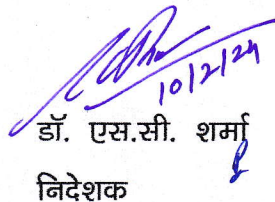 10/2/24
डॉ. एस.सी. शर्मा
निदेशक